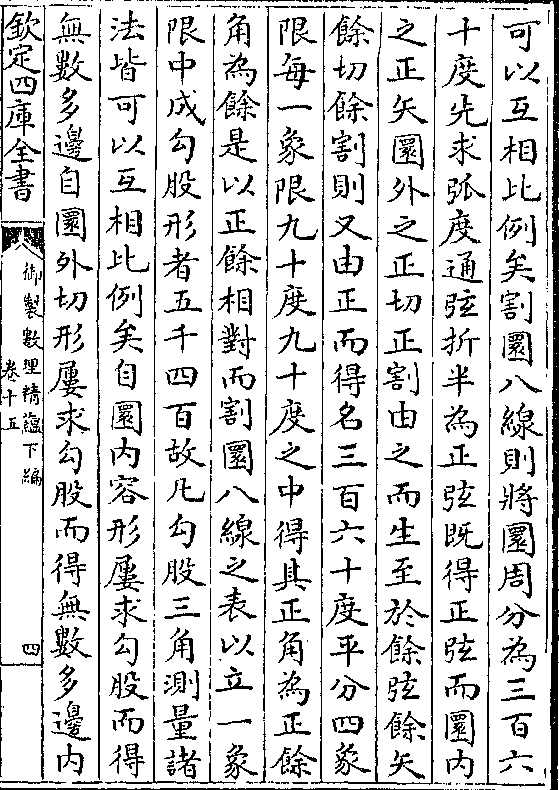 可以互相比例矣割圜八線則將圜周分為三百六
十度先求弧度通弦折半為正弦既得正弦而圜内
之正矢圜外之正切正割由之而生至於餘弦餘矢
餘切餘割則又由正而得名三百六十度平分四象
限每一象限九十度九十度之中得其正角為正餘
角為餘是以正餘相對而割圜八線之表以立一象
限中成勾股形者五千四百故凡勾股三角測量諸
法皆可以互相比例矣自圜内容形屢求勾股而得
無數多邊自圜外切形屢求勾股而得無數多邊内
欽定四庫全書
御製數理精藴下編
卷十五
四